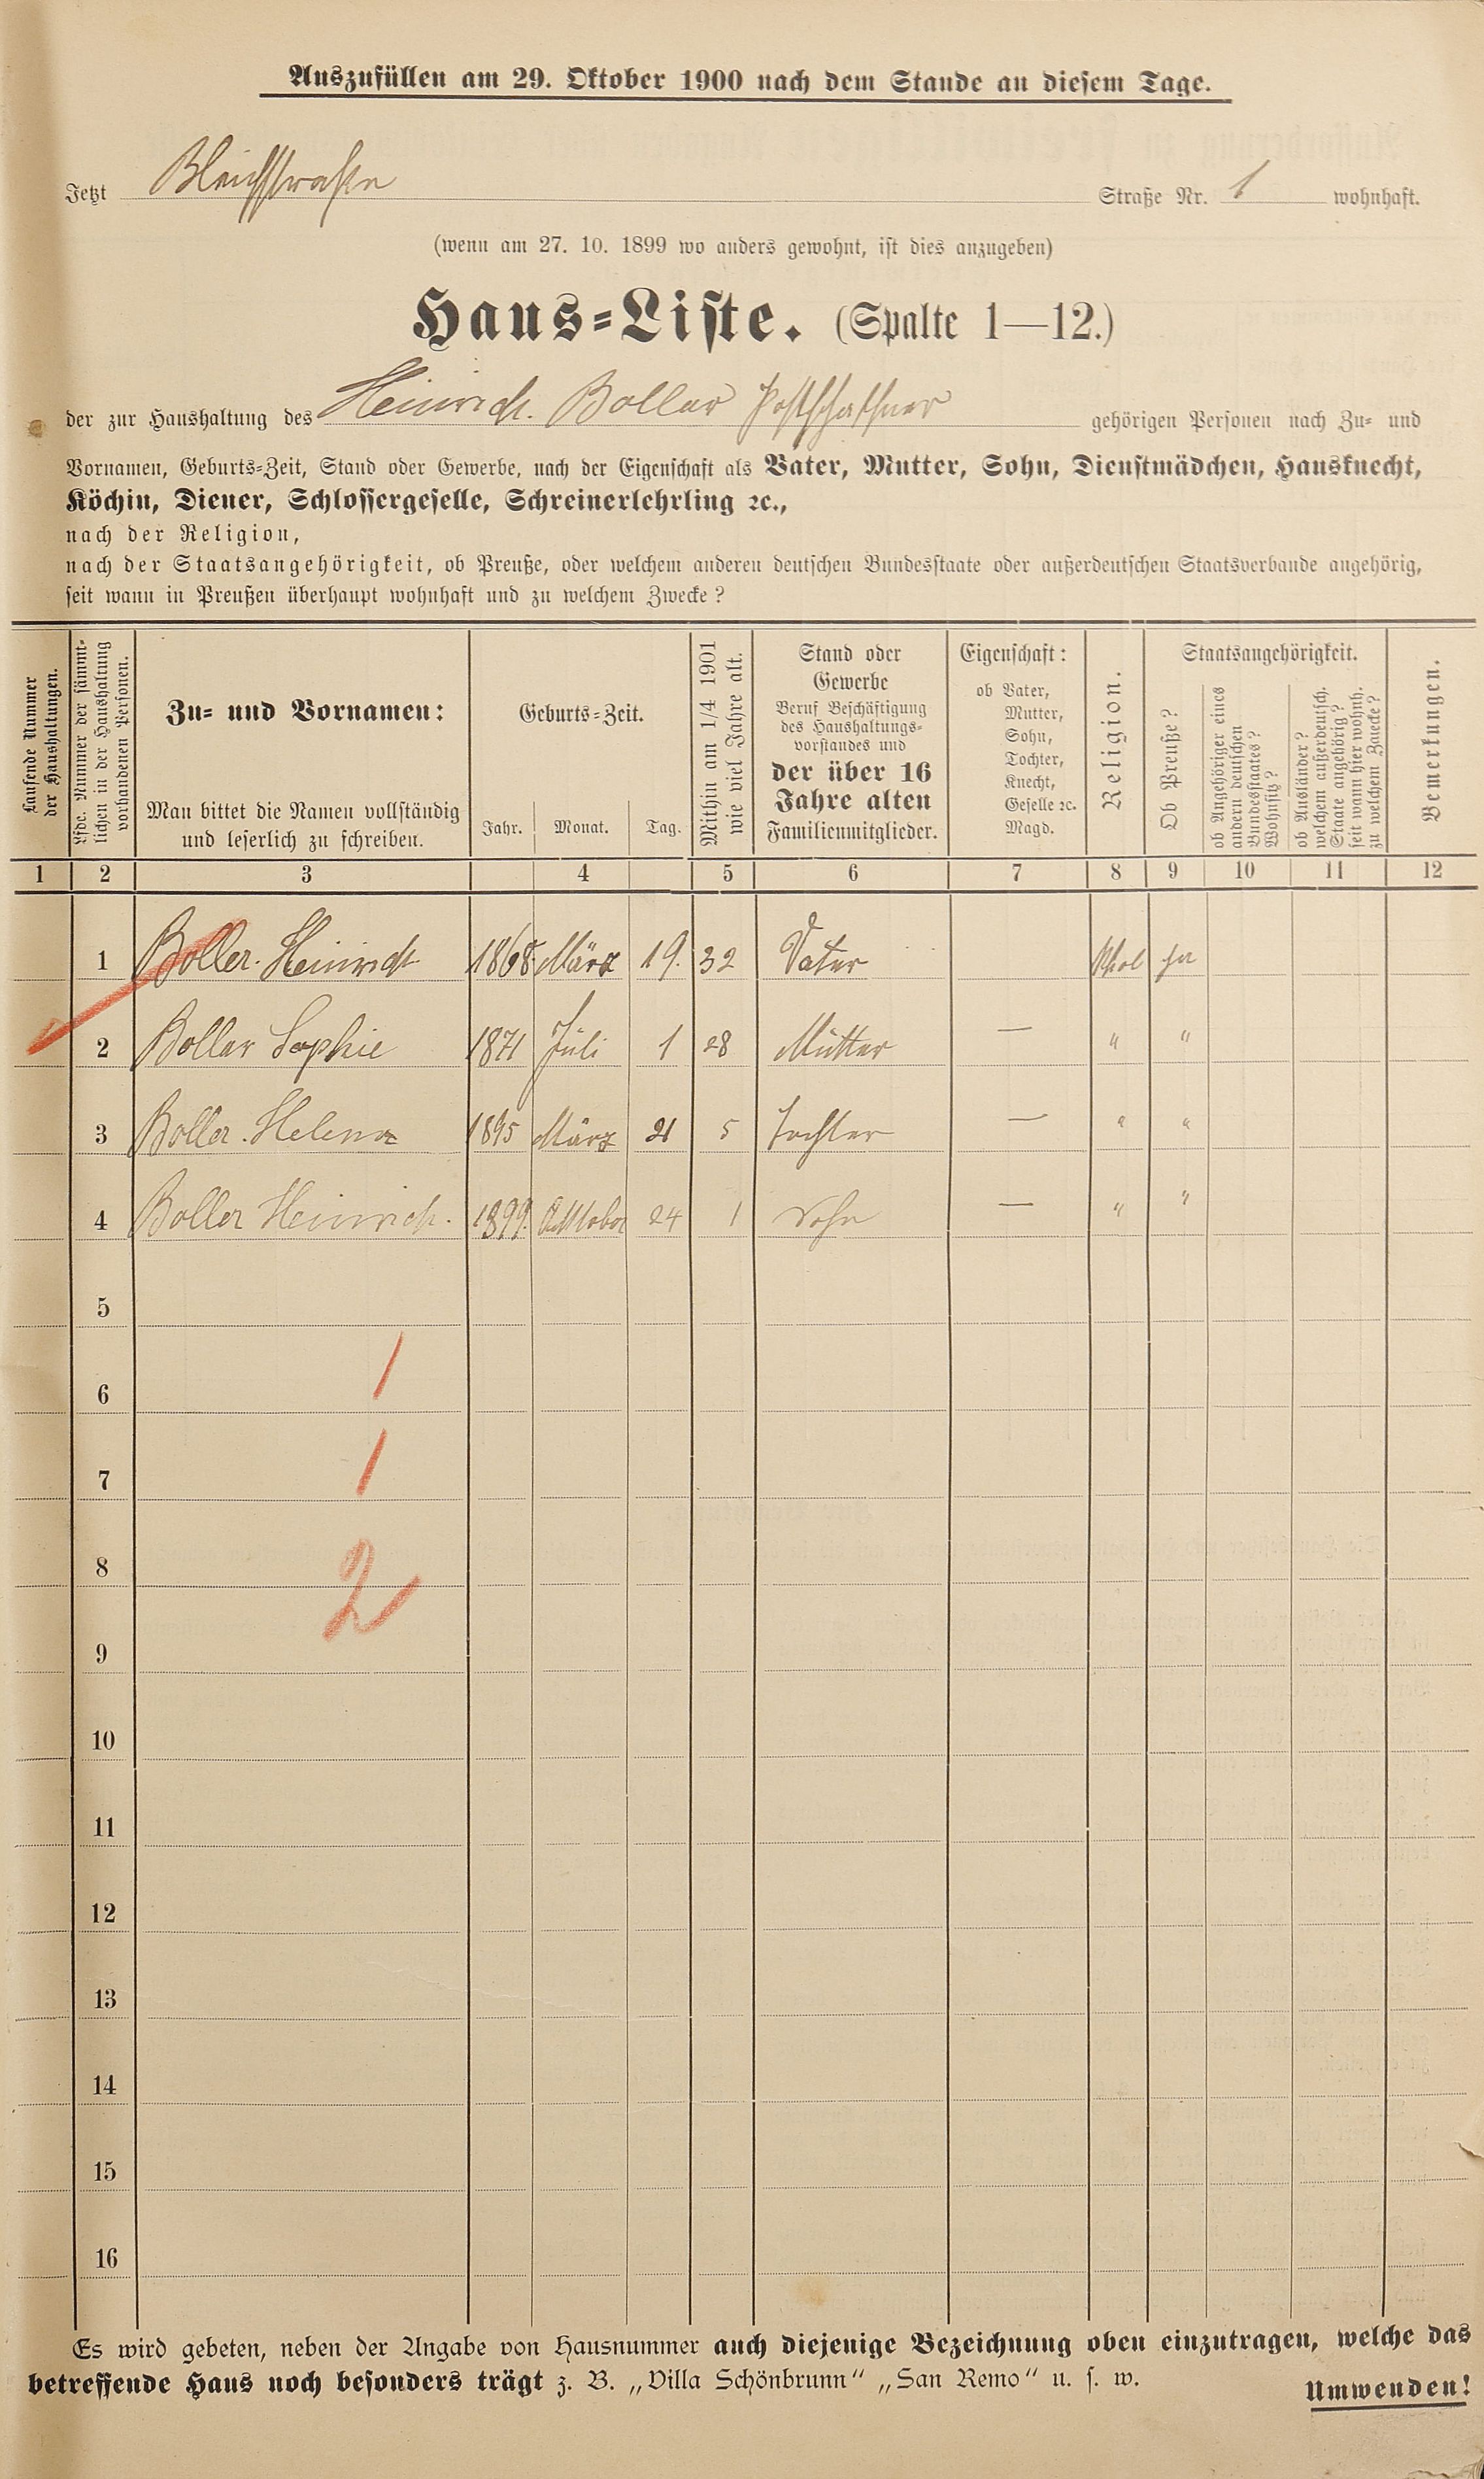 Auszufüllen am 29. Oktober 1900 nach dem Stande an diesem Tage.
Jetzt Bleichstraße Straße Nr. 1 wohnhaft.
(wenn am 27. 10. 1899 wo anders gewohnt, ist dies anzugeben)
Haus-Liste. (Spalte 1—12.)
der zur Haushaltung des Heinrich. Boller Postschaffner gehörigen Personen nach Zu- und
Vornamen, Geburts-Zeit, Stand oder Gewerbe, nach der Eigenschaft als Vater, Mutter, Sohn, Dienstmädchen, Hausknecht,
Köchin, Diener, Schlossergeselle, Schreinerlehrling ꝛc.,
nach der Religion,
nach der Staatsangehörigkeit, ob Preuße, oder welchem anderen deutschen Bundesstaate oder außerdeutschen Staatsverbande angehörig,
seit wann in Preußen überhaupt wohnhaft und zu welchem Zwecke?
Laufende Nummer
der Haushaltungen.
Lfde. Nummer der sämmt-
lichen in der Haushaltung
vorhandenen Personen.
Zu- und Vornamen:
Man bittet die Namen vollständig
und leserlich zu schreiben.
Geburts-Zeit.
Jahr. Monat. Tag.
Mithin am 1/4 1901
wie viel Jahre alt.
Stand oder
Gewerbe
Beruf Beschäftigung
des Haushaltungs-
vorstandes und
der über 16
Jahre alten
Familienmitglieder.
Eigenschaft:
ob Vater,
Mutter,
Sohn,
Tochter,
Knecht,
Geselle ꝛc.
Magd.
Religion.
Staatsangehörigkeit.
Ob Preuße?
ob Angehöriger eines
andern deutschen
Bundesstaates?
Wohnsitz?
ob Ausländer?
welchem außerdeutsch.
Staate angehörig?
seit wann hier wohnh.
zu welchem Zwecke?
Bemerkungen.
1 2 3 4 5 6 7 8 9 10 11 12
1 Boller. Heinrich 1868 März 19. 32 Vater ja
2 Boller Sophie 1871 Juli 1 28 Mutter — " "
3 Boller. Helena 1895 März 21 5 Tochter — " "
4 Boller Heinrich. 1899. Oktober 24 1 Sohn — " "
5
6 1
7 1
8 2
9
10
11
12
13
14
15
16
Es wird gebeten, neben der Angabe von Hausnummer auch diejenige Bezeichnung oben einzutragen, welche das
betreffende Haus noch besonders trägt z. B. „Villa Schönbrunn“ „San Remo“ u. s. w.
Umwenden!